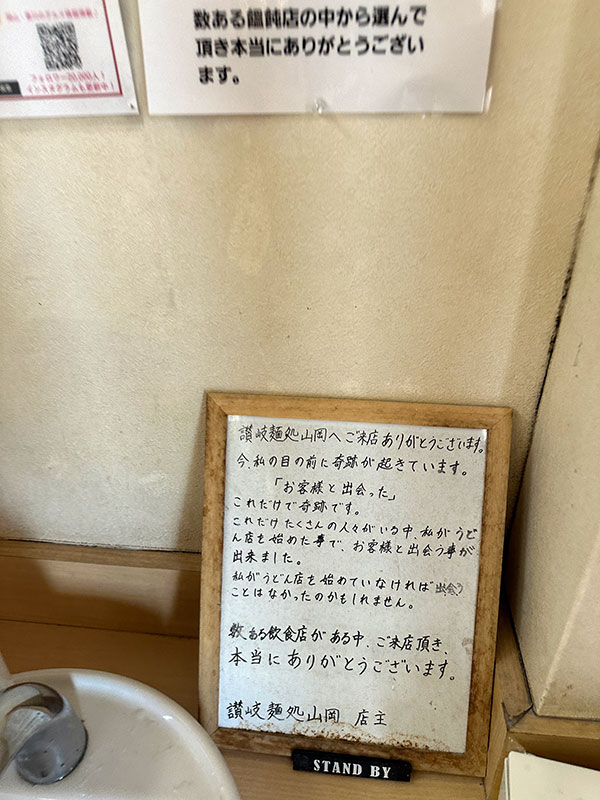 フォロワー20,000人！
インスタグラムも更新中！
数ある饂飩店の中から選んで
頂き本当にありがとうござい
ます。
讃岐麺処山岡へご来店ありがとうございます。
今、私の目の前に奇跡が起きています。
「お客様と出会った」
これだけで奇跡です。
これだけたくさんの人々がいる中、私がうど
ん店を始めた事で、お客様と出会う事が
出来ました。
私がうどん店を始めていなければ出会う
ことはなかったのかもしれません。
数ある飲食店がある中、ご来店頂き、
本当にありがとうございます。
讃岐麺処山岡 店主
STAND BY